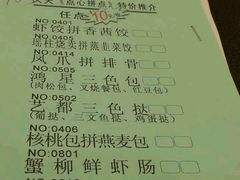 《点心拼点》特价推介
任点 70
NO:0401
虾饺拼香茜饺
NO:0405
瑶柱烧卖拼蒸韭菜饺
NO:0414
凤爪拼排骨
NO:0505
鸿星三色包
(肉松包、叉烧餐包、红豆包)
NO:0502
艺都三色挞
(葡挞、三文鱼挞、鸡蛋挞)
NO:0406
核桃包拼燕麦包
NO:0801
蟹柳鲜虾肠